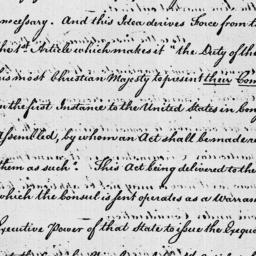 necessary. And this Idea derives Force from t
the 1st Article which makes it "the Duty of the
his most Christian Majesty to present their Con
in the first Instance to the United States in Con
Assembled, by whom an Act shall be made re
them as such. This Act being delivered to the
which the Consul is sent operates as a Warran
Executive Power of that State to issue the Exequ